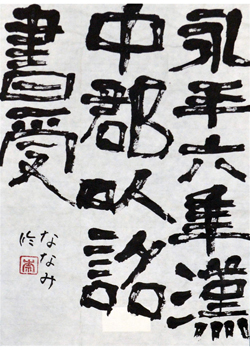 永平六年漢
中郡以詔
書受
ななみ